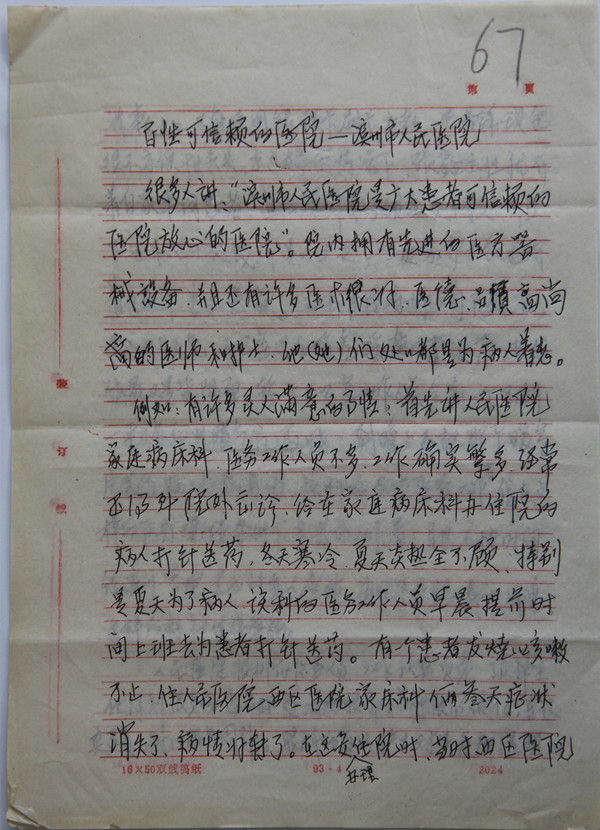 67
第 页
百姓可信赖的医院—滨州市人民医院
很多人讲、“滨州市人民医院是广大患者可信赖的
医院放心的医院”。院内拥有先进的医疗器
械设备、并且还有许多医术很好、医德、高尚
的医师和护士、他(她)们处处都是为病人着想。
例如:有许多感人满意的事情:首先讲人民医院
家庭病床科、医务工作人员不多、工作确实繁多、经常
还得到院外出诊、给在家庭病床科办住院的
病人打针送药、冬天寒冷、夏天炎热全不顾、特别
是夏天为了病人、该科的医务工作人员早晨提前时
间上班去为患者打针送药。有个患者发烧咳嗽
不止、住人民医院西区医院家床科俩叁天症状
消失了、病情好转了。在这安住院时、当时西区医院
办理
装
订
线
16×50双线稿纸 93·4 2024